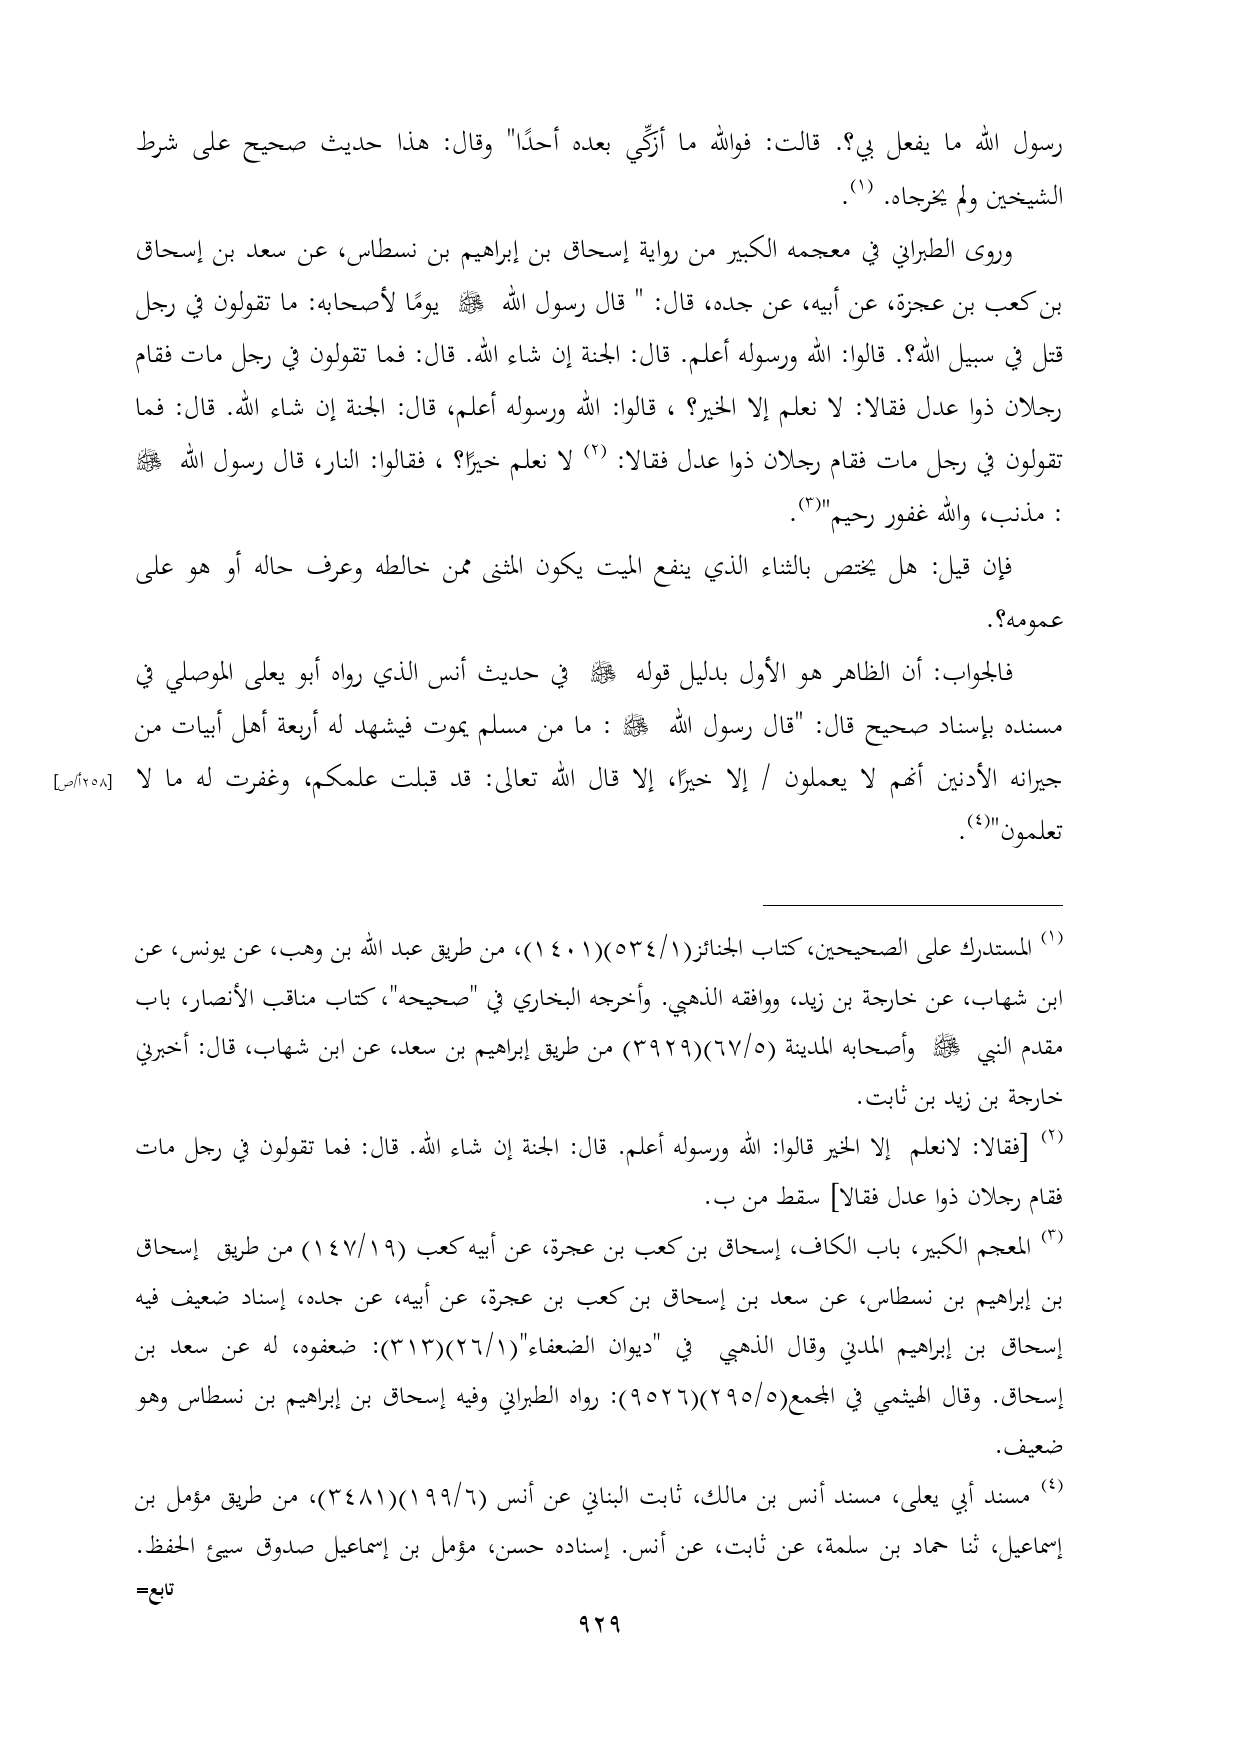 رسول الله ما يفعل بي؟. قالت: فوالله ما أزكِّي بعده أحدًا" وقال: هذا حديث صحيح على شرط
الشيخين ولم يخرجاه. (١).
وروى الطبراني في معجمه الكبير من رواية إسحاق بن إبراهيم بن نسطاس، عن سعد بن إسحاق
بن كعب بن عجزة، عن أبيه، عن جده، قال: " قال رسول الله ﷺ يومًا لأصحابه: ما تقولون في رجل
قتل في سبيل الله؟. قالوا: الله ورسوله أعلم. قال: الجنة إن شاء الله. قال: فما تقولون في رجل مات فقام
رجلان ذوا عدل فقالا: لا نعلم إلا الخير؟ ، قالوا: الله ورسوله أعلم، قال: الجنة إن شاء الله. قال: فما
تقولون في رجل مات فقام رجلان ذوا عدل فقالا: (٢) لا نعلم خيرًا؟ ، فقالوا: النار، قال رسول الله ﷺ
: مذنب، والله غفور رحيم"(٣).
فإن قيل: هل يختص بالثناء الذي ينفع الميت يكون المثنى ممن خالطه وعرف حاله أو هو على
عمومه؟.
فالجواب: أن الظاهر هو الأول بدليل قوله ﷺ في حديث أنس الذي رواه أبو يعلى الموصلي في
مسنده بإسناد صحيح قال: "قال رسول الله ﷺ : ما من مسلم يموت فيشهد له أربعة أهل أبيات من
جيرانه الأدنين أنهم لا يعملون / إلا خيرًا، إلا قال الله تعالى: قد قبلت علمكم، وغفرت له ما لا [٢٥٨أ/ص]
تعلمون"(٤).
(١) المستدرك على الصحيحين، كتاب الجنائز(٥٣٤/١)(١٤٠١)، من طريق عبد الله بن وهب، عن يونس، عن
ابن شهاب، عن خارجة بن زيد، ووافقه الذهبي. وأخرجه البخاري في "صحيحه"، كتاب مناقب الأنصار، باب
مقدم النبي ﷺ وأصحابه المدينة (٦٧/٥)(٣٩٢٩) من طريق إبراهيم بن سعد، عن ابن شهاب، قال: أخبرني
خارجة بن زيد بن ثابت.
(٢) [فقالا: لانعلم إلا الخير قالوا: الله ورسوله أعلم. قال: الجنة إن شاء الله. قال: فما تقولون في رجل مات
فقام رجلان ذوا عدل فقالا] سقط من ب.
(٣) المعجم الكبير، باب الكاف، إسحاق بن كعب بن عجرة، عن أبيه كعب (١٤٧/١٩) من طريق إسحاق
بن إبراهيم بن نسطاس، عن سعد بن إسحاق بن كعب بن عجرة، عن أبيه، عن جده، إسناد ضعيف فيه
إسحاق بن إبراهيم المدني وقال الذهبي في "ديوان الضعفاء"(٢٦/١)(٣١٣): ضعفوه، له عن سعد بن
إسحاق. وقال الهيثمي في المجمع(٢٩٥/٥)(٩٥٢٦): رواه الطبراني وفيه إسحاق بن إبراهيم بن نسطاس وهو
ضعيف.
(٤) مسند أبي يعلى، مسند أنس بن مالك، ثابت البناني عن أنس (١٩٩/٦)(٣٤٨١)، من طريق مؤمل بن
إسماعيل، ثنا حماد بن سلمة، عن ثابت، عن أنس. إسناده حسن، مؤمل بن إسماعيل صدوق سيئ الحفظ.
تابع=
٩٢٩